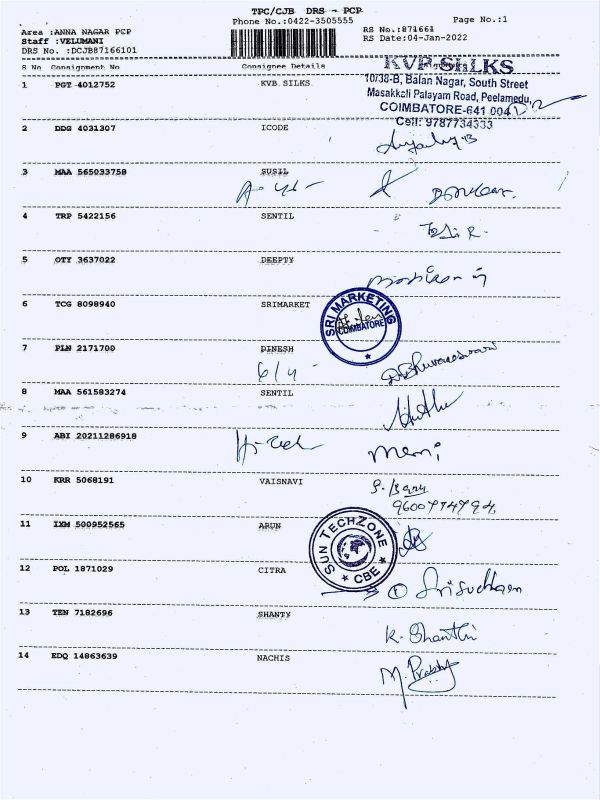 TPC/CJB DRS - PCP
Phone No.:0422-3505555 Page No.:1
Area :ANNA NAGAR PCP RS No.:871661
Staff :VELUMANI RS Date:04-Jan-2022
DRS No. :DCJB87166101
S No Consignment No Consignee Details
KVB SILKS
1 PGT 4012752 KVB SILKS
10/38-B, Balan Nagar, South Street
Masakkali Palayam Road, Peelamedu,
COIMBATORE-641 004
Cell: 9787734333
2 DDG 4031307 ICODE
3 MAA 565033758 SUSIL
4 TRP 5422156 SENTIL
5 OTY 3637022 DEEPTY
6 TCG 8098940 SRIMARKET
SRI MARKETING
COIMBATORE
7 PLN 2171700 DINESH
D. Bhuvaneswari
8 MAA 561583274 SENTIL
9 ABI 20211286918
Hi-Tech
10 KRR 5068191 VAISNAVI
9600774794
11 IXM 500952565 ARUN
SUN TECHZONE
CBE
12 POL 1871029 CITRA
13 TEN 7182696 SHANTY
K. Shanthi
14 EDQ 14863639 NACHIS
M. Prabhu